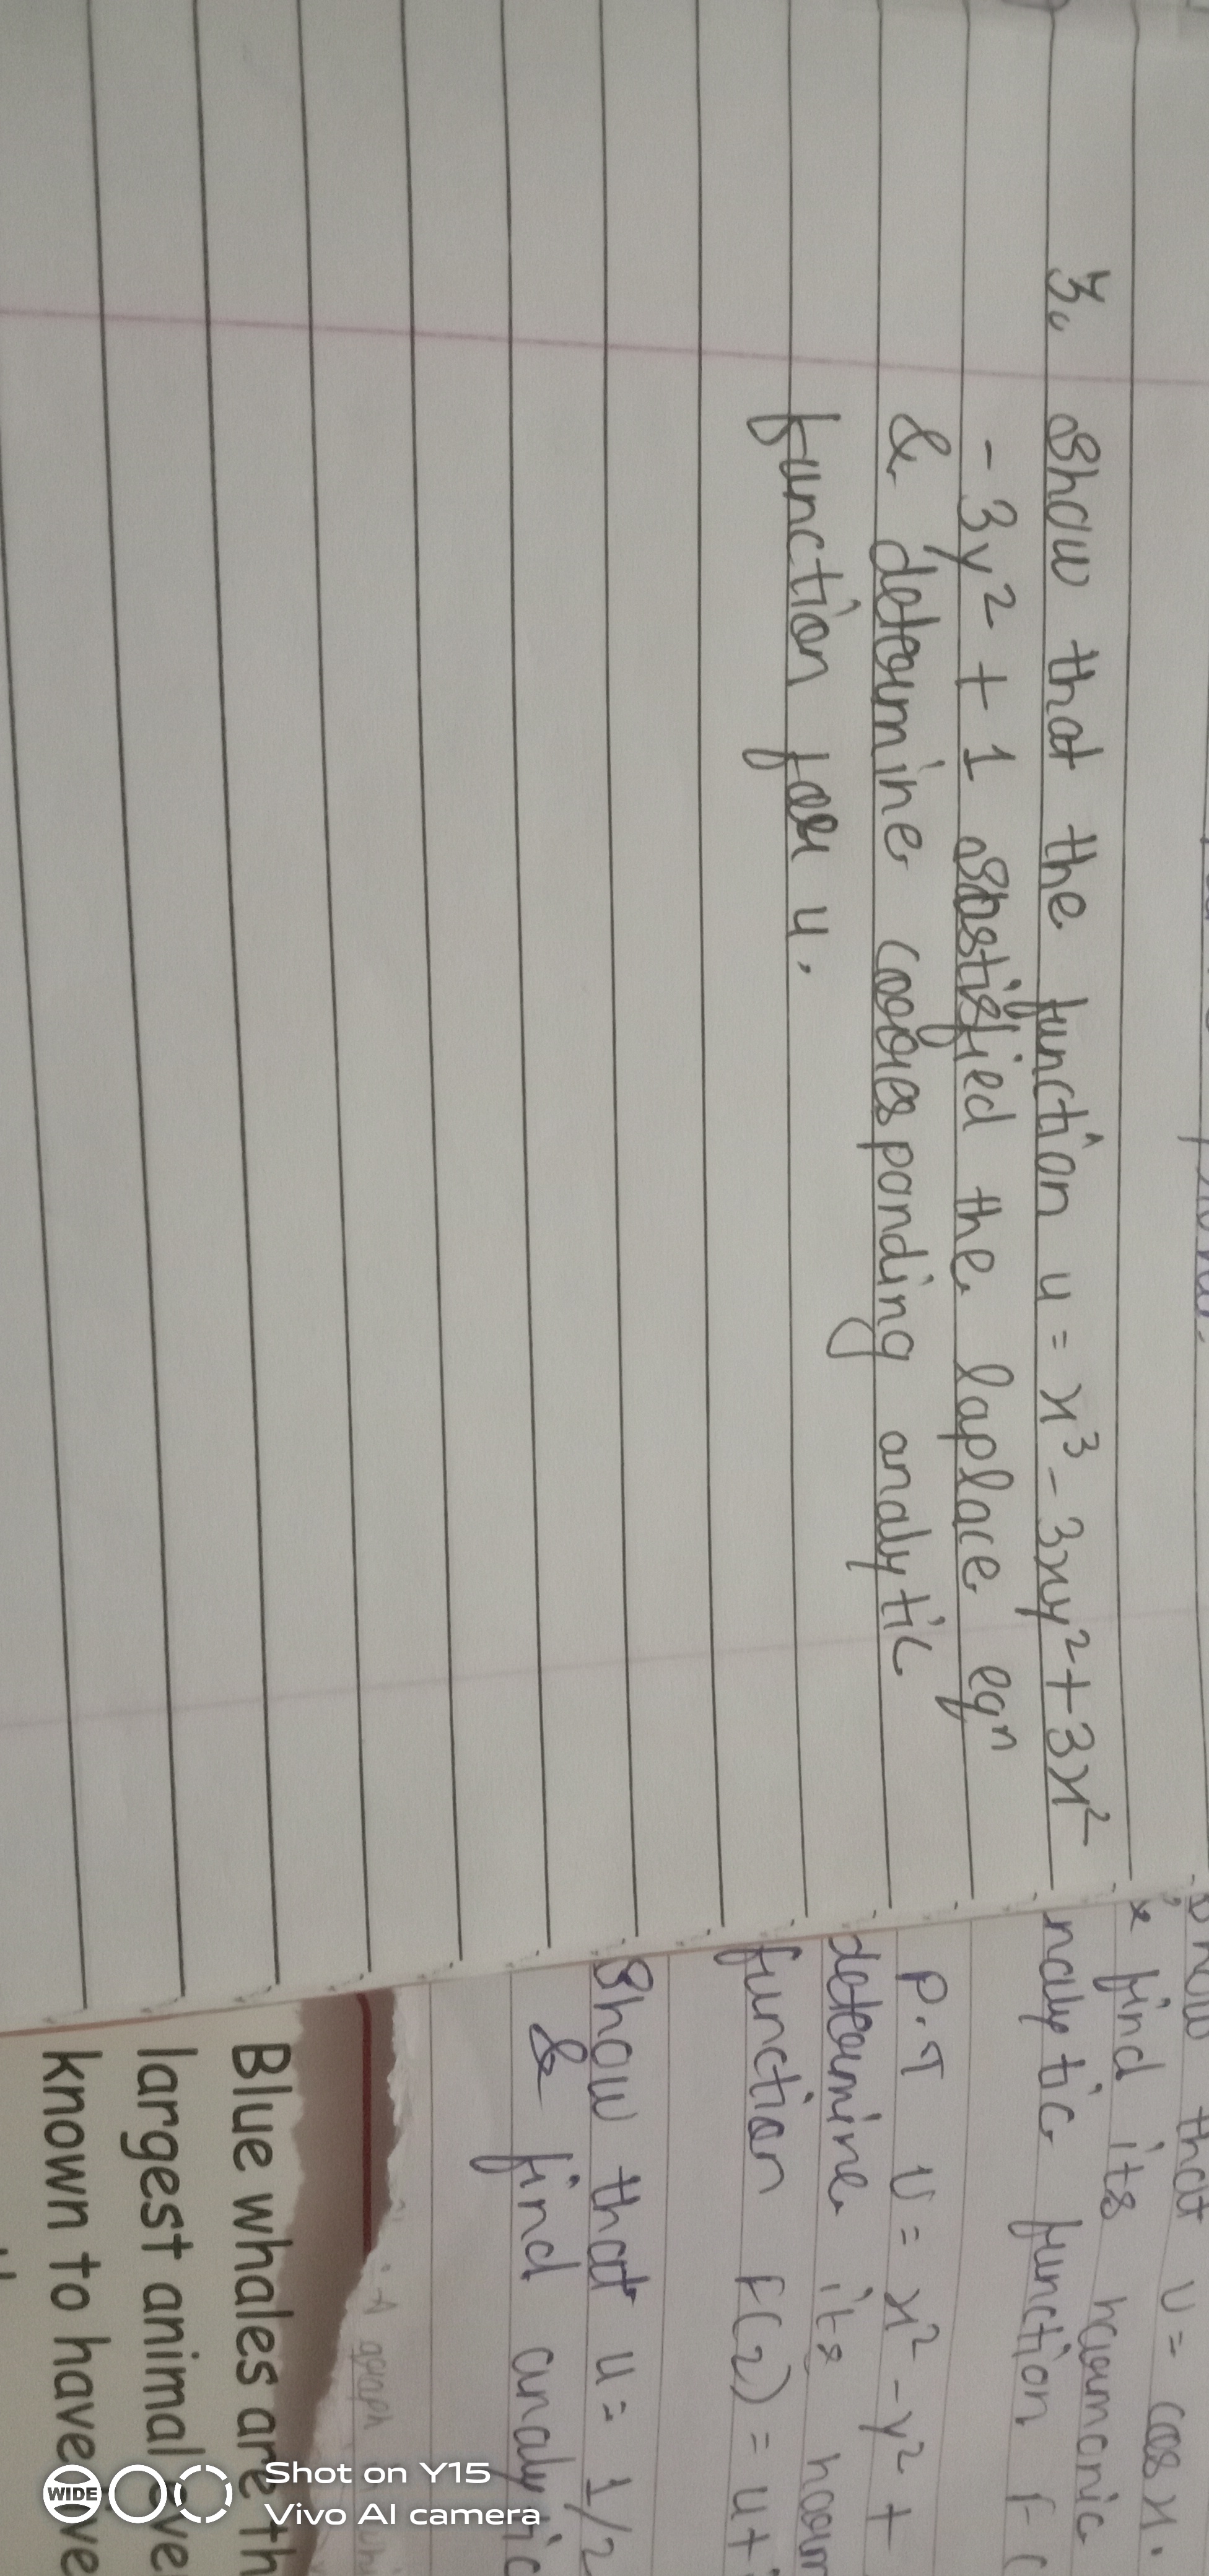 3. Show that the function u = x³ - 3xy² + 3x²
- 3y² + 1 sastisfied the laplace eqⁿ
& determine corresponding analytic
function for u.
that v = cos x.
& find its harmonic
nalytic function F(
P.T U = x² - y² +
determine its harm
function F(z) = u +
Show that u = 1/2
& find analytic
A graph
Blue whales are th
largest animal eve
known to have
Shot on Y15
Vivo AI camera
WIDE